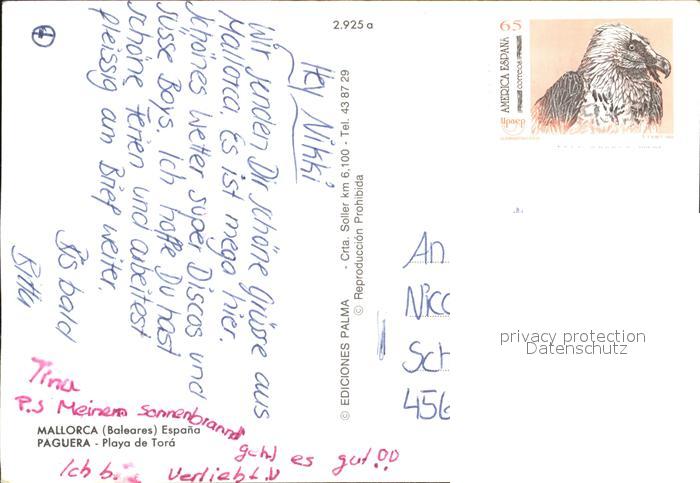 Hey Nikki
Wir senden Dir schöne Grüsse aus
Mallorca. Es ist mega hier.
Schönes Wetter super Discos und
süsse Boys. Ich hoffe Du hast
schöne Ferien und arbeitest
fleissig am Brief weiter.
Bis bald
Tina
P.S Meinem Sonnenbrannd
geht es gut!!
Ich b verliebt.
MALLORCA (Baleares) España
PAGUERA - Playa de Torá
2.925 a
© EDICIONES PALMA - Crta. Soller km 6,100 - Tel. 43 87 29
© Reproducción Prohibida
65
AMERICA ESPAÑA
correos
upaep
An
Nico
Sch
456
privacy protection
Datenschutz